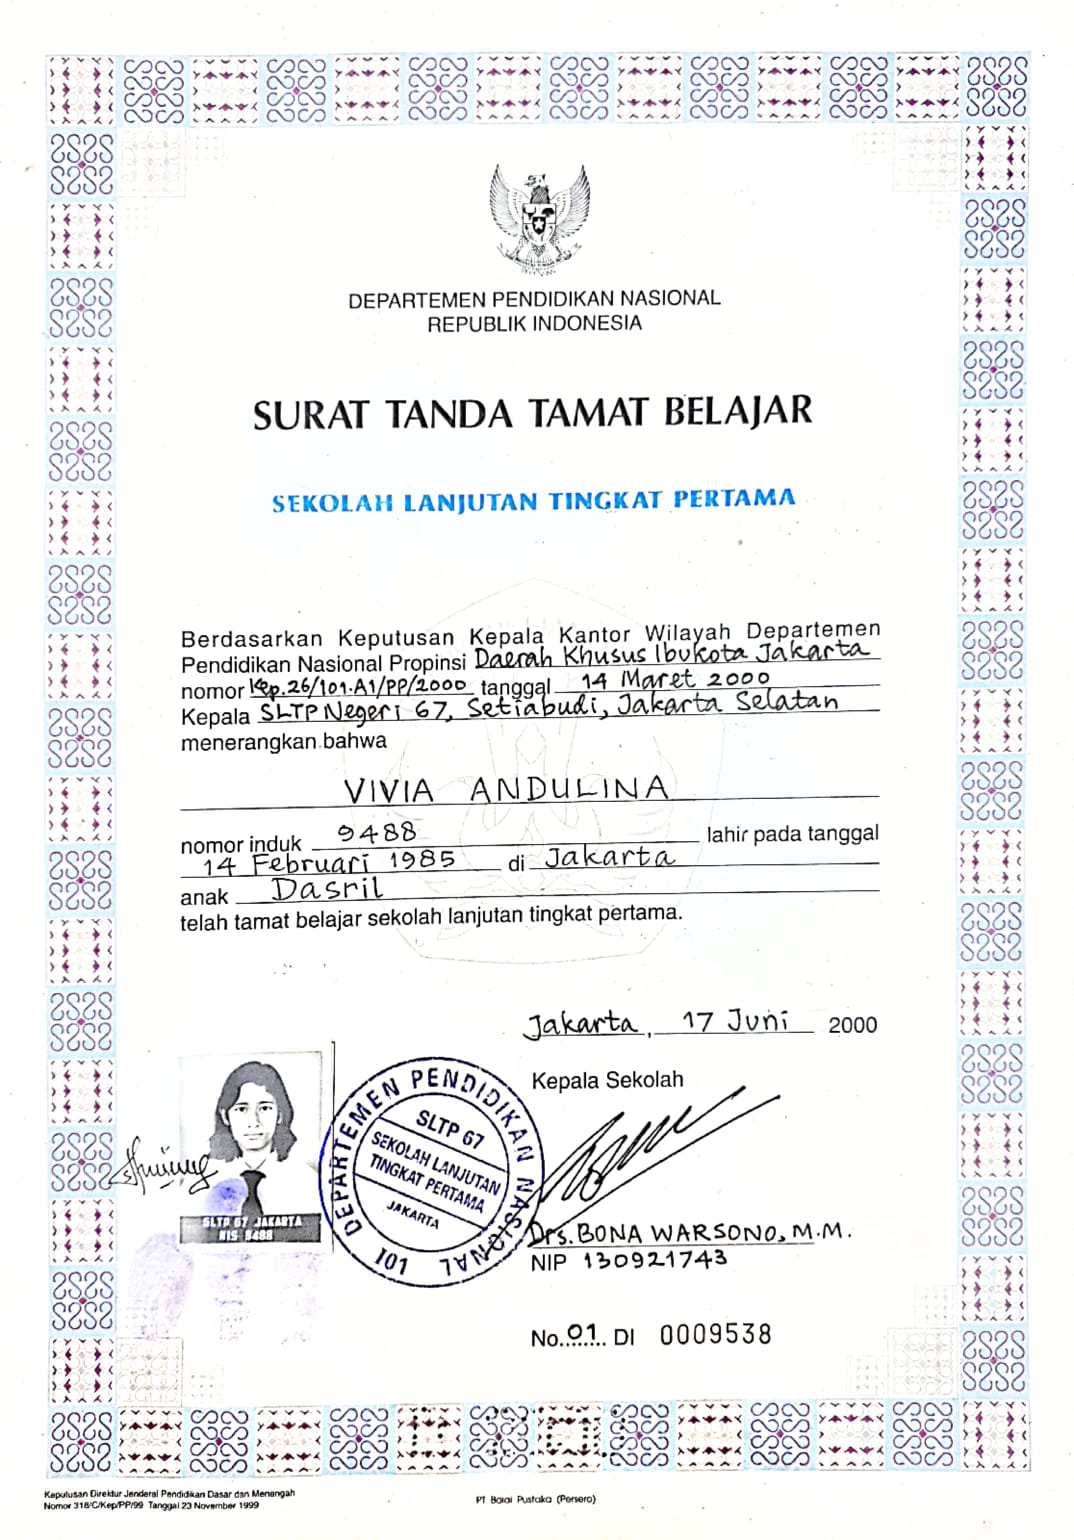 DEPARTEMEN PENDIDIKAN NASIONAL
REPUBLIK INDONESIA
SURAT TANDA TAMAT BELAJAR
SEKOLAH LANJUTAN TINGKAT PERTAMA
Berdasarkan Keputusan Kepala Kantor Wilayah Departemen
Pendidikan Nasional Propinsi Daerah Khusus Ibukota Jakarta
nomor Kep.26/101.A1/PP/2000 tanggal 14 Maret 2000
Kepala SLTP Negeri 67, Setiabudi, Jakarta Selatan
menerangkan bahwa
VIVIA ANDULINA
nomor induk 9488 lahir pada tanggal
14 Februari 1985 di Jakarta
anak Dasril
telah tamat belajar sekolah lanjutan tingkat pertama.
Jakarta, 17 Juni 2000
Kepala Sekolah
DEPARTEMEN PENDIDIKAN NASIONAL
101
SLTP 67
SEKOLAH LANJUTAN
TINGKAT PERTAMA
JAKARTA
SLTP 67 JAKARTA
NIS 9488
Drs. BONA WARSONO, M.M.
NIP 130921743
No. 01 DI 0009538
Keputusan Direktur Jenderal Pendidikan Dasar dan Menengah
Nomor 318/C/Kep/PP/99 Tanggal 23 November 1999
PT Balai Pustaka (Persero)